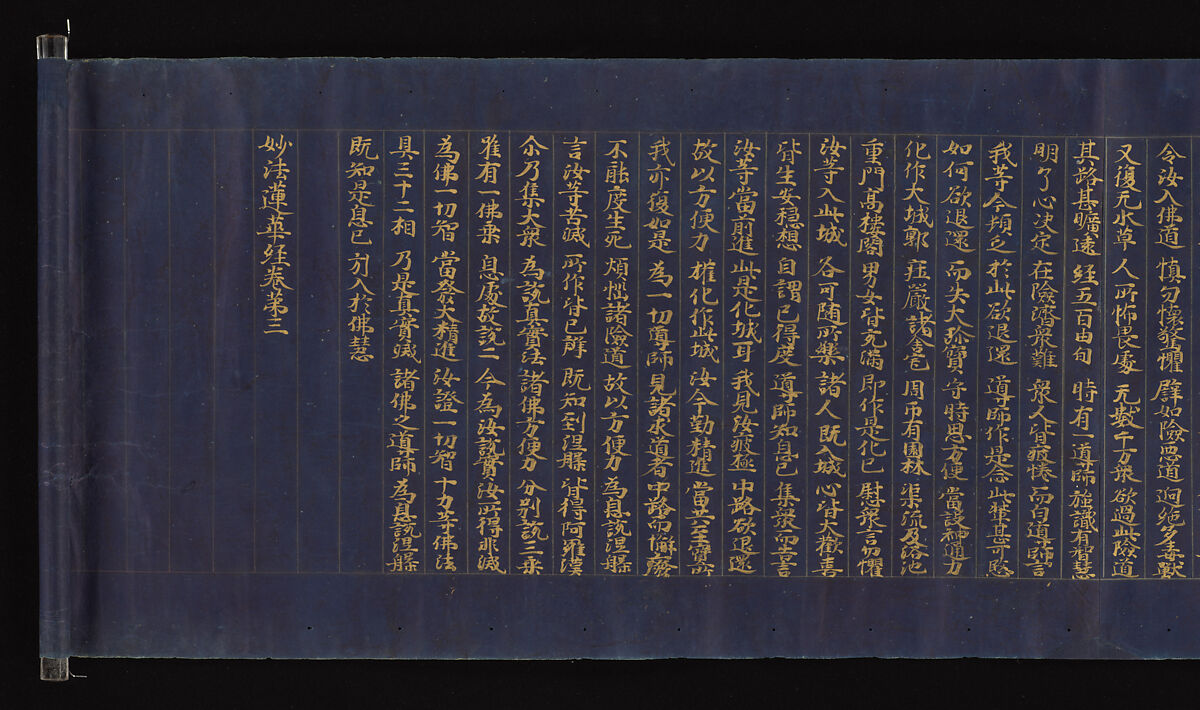 令汝入佛道 慎勿懷驚懼 譬如險惡道 迥絶多毒獸
又復无水草 人所怖畏處 无數千万衆 欲過此險道
其路甚曠遠 經五百由旬 時有一導師 強識有智慧
明了心决定 在險濟衆難 衆人皆疲惓 而白導師言
我等今頓乏 於此欲退還 導師作是念 此輩甚可愍
如何欲退還 而失大珎寶 尋時思方便 當設神通力
化作大城郭 莊嚴諸舍宅 周帀有園林 渠流及浴池
重門高樓閣 男女皆充滿 即作是化已 慰衆言勿懼
汝等入此城 各可随所樂 諸人既入城 心皆大歡喜
皆生安穩想 自謂已得度 導師知息已 集衆而告言
汝等當前進 此是化城耳 我見汝疲極 中路欲退還
故以方便力 權化作此城 汝今勤精進 當共至寶所
我亦復如是 為一切導師 見諸求道者 中路而懈癈
不能度生死 煩惱諸險道 故以方便力 為息說涅槃
言汝等苦滅 所作皆已辦 既知到涅槃 皆得阿羅漢
尒乃集大衆 為說真實法 諸佛方便力 分別說三乘
唯有一佛乘 息處故說二 今為汝說實 汝所得非滅
為佛一切智 當發大精進 汝證一切智 十力等佛法
具三十二相 乃是真實滅 諸佛之導師 為息說涅槃
既知是息已 引入於佛慧
妙法蓮華經卷第三